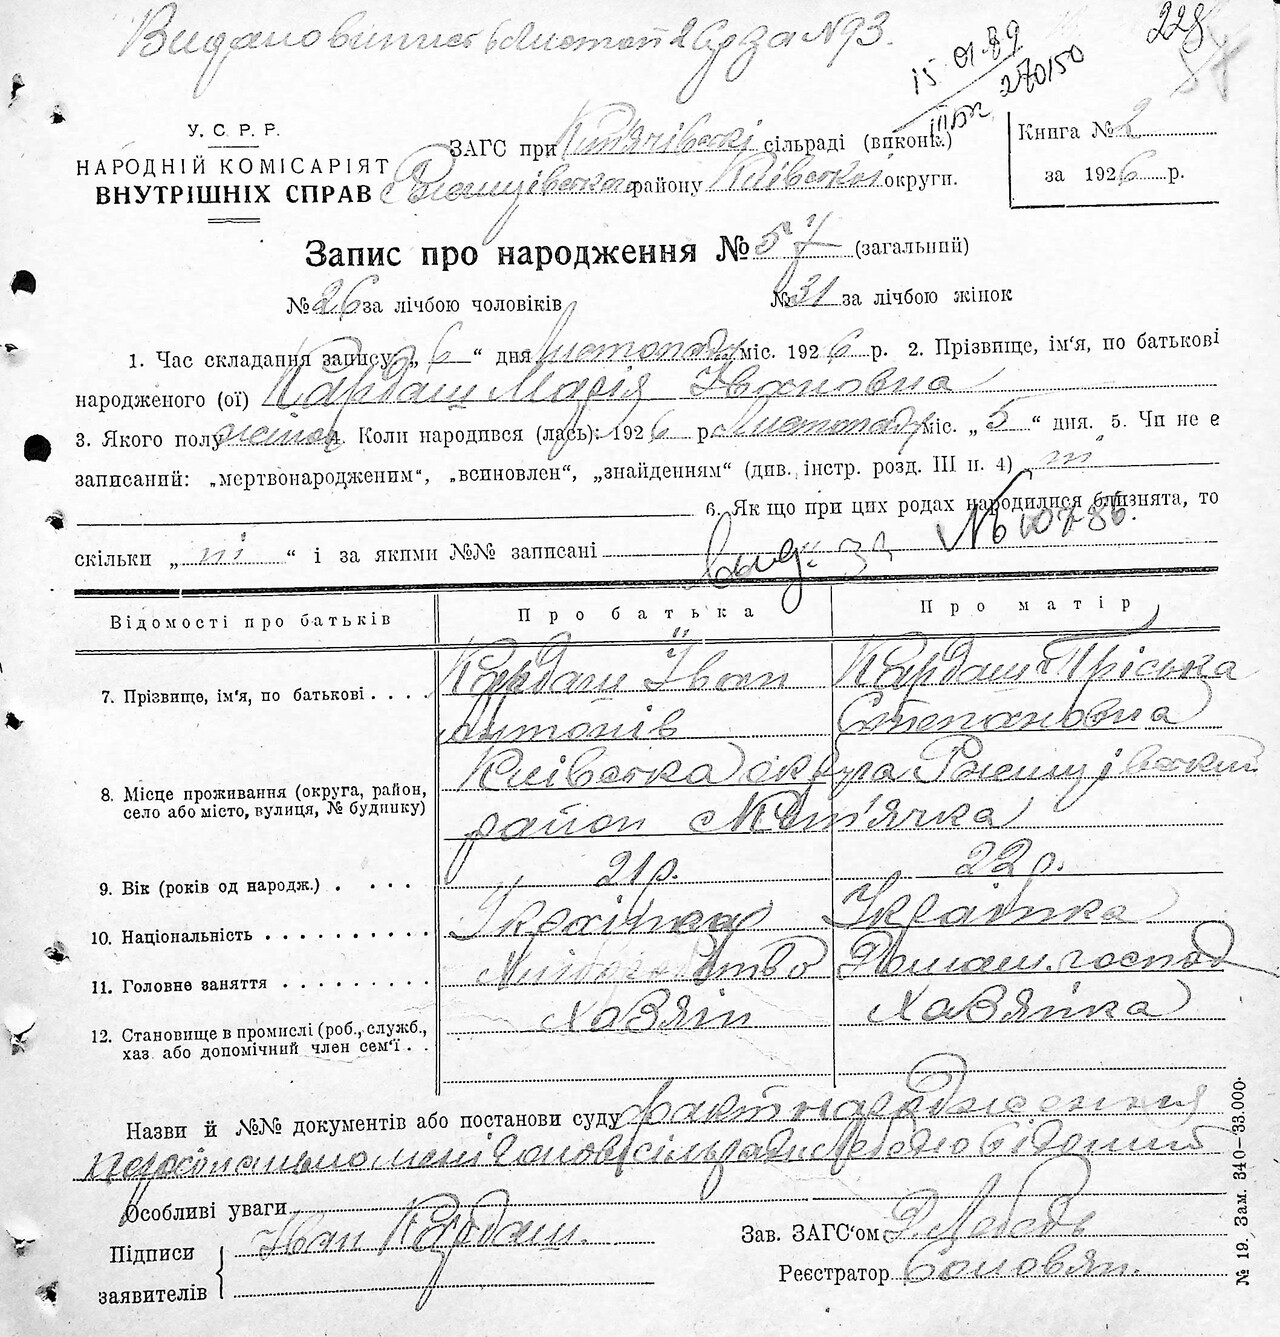 Видано витис 6 Листоп 26 р за N 93.
228
15.01.89
270150
У. С. Р. Р.
НАРОДНІЙ КОМІСАРІЯТ
ВНУТРІШНІХ СПРАВ
ЗАГС при Кип'ячівські сільраді (виконк.)
Ржищівського району Київської округи.
Книга № 2
за 1926 р.
Запис про народження № 57 (загальний)
№ 26 за лічбою чоловіків № 31 за лічбою жінок
1. Час складання запису „ 6 “ дня Листопаду міс. 1926 р. 2. Прізвище, ім'я, по батькові
народженого (ої) Кардаш Марія Івановна
3. Якого полу жіноч. Коли народився (лась): 1926 р. Листопаду міс. „ 5 “ дня. 5. Чи не є
записаний: „мертвонародженим“, „всиновлен“, „знайденням“ (див. інстр. розд. III п. 4) ні
6. Як що при цих родах народилися близнята, то
скільки „ ні “ і за якими №№ записані
Відомості про батьків Про батька Про матір
7. Прізвище, ім'я, по батькові . . . . Кардаш Іван Кардаш Пріська
Антонів Степановна
8. Місце проживання (округа, район, село або місто, вулиця, № будинку) Київська округа Ржищівський
район с Кип'ячка
9. Вік (років од народж.) . . . . 21 р. 22 р.
10. Національність . . . . . . . . . . Українец Українка
11. Головне заняття . . . . . . . . . Хліборобство Домаш. господ
12. Становище в промислі (роб., служб., хаз. або допомічний член сем'ї . . Хазяїн Хазяйка
Назви й №№ документів або постанови суду факт народження
персонально мені Голові сільради Лебедю відомий
Особливі уваги
Підписи заявителів Іван Кардаш.
Зав. ЗАГС'ом Лебедь
Реєстратор Соловян.
№ 19. Зам. 340—33.000.